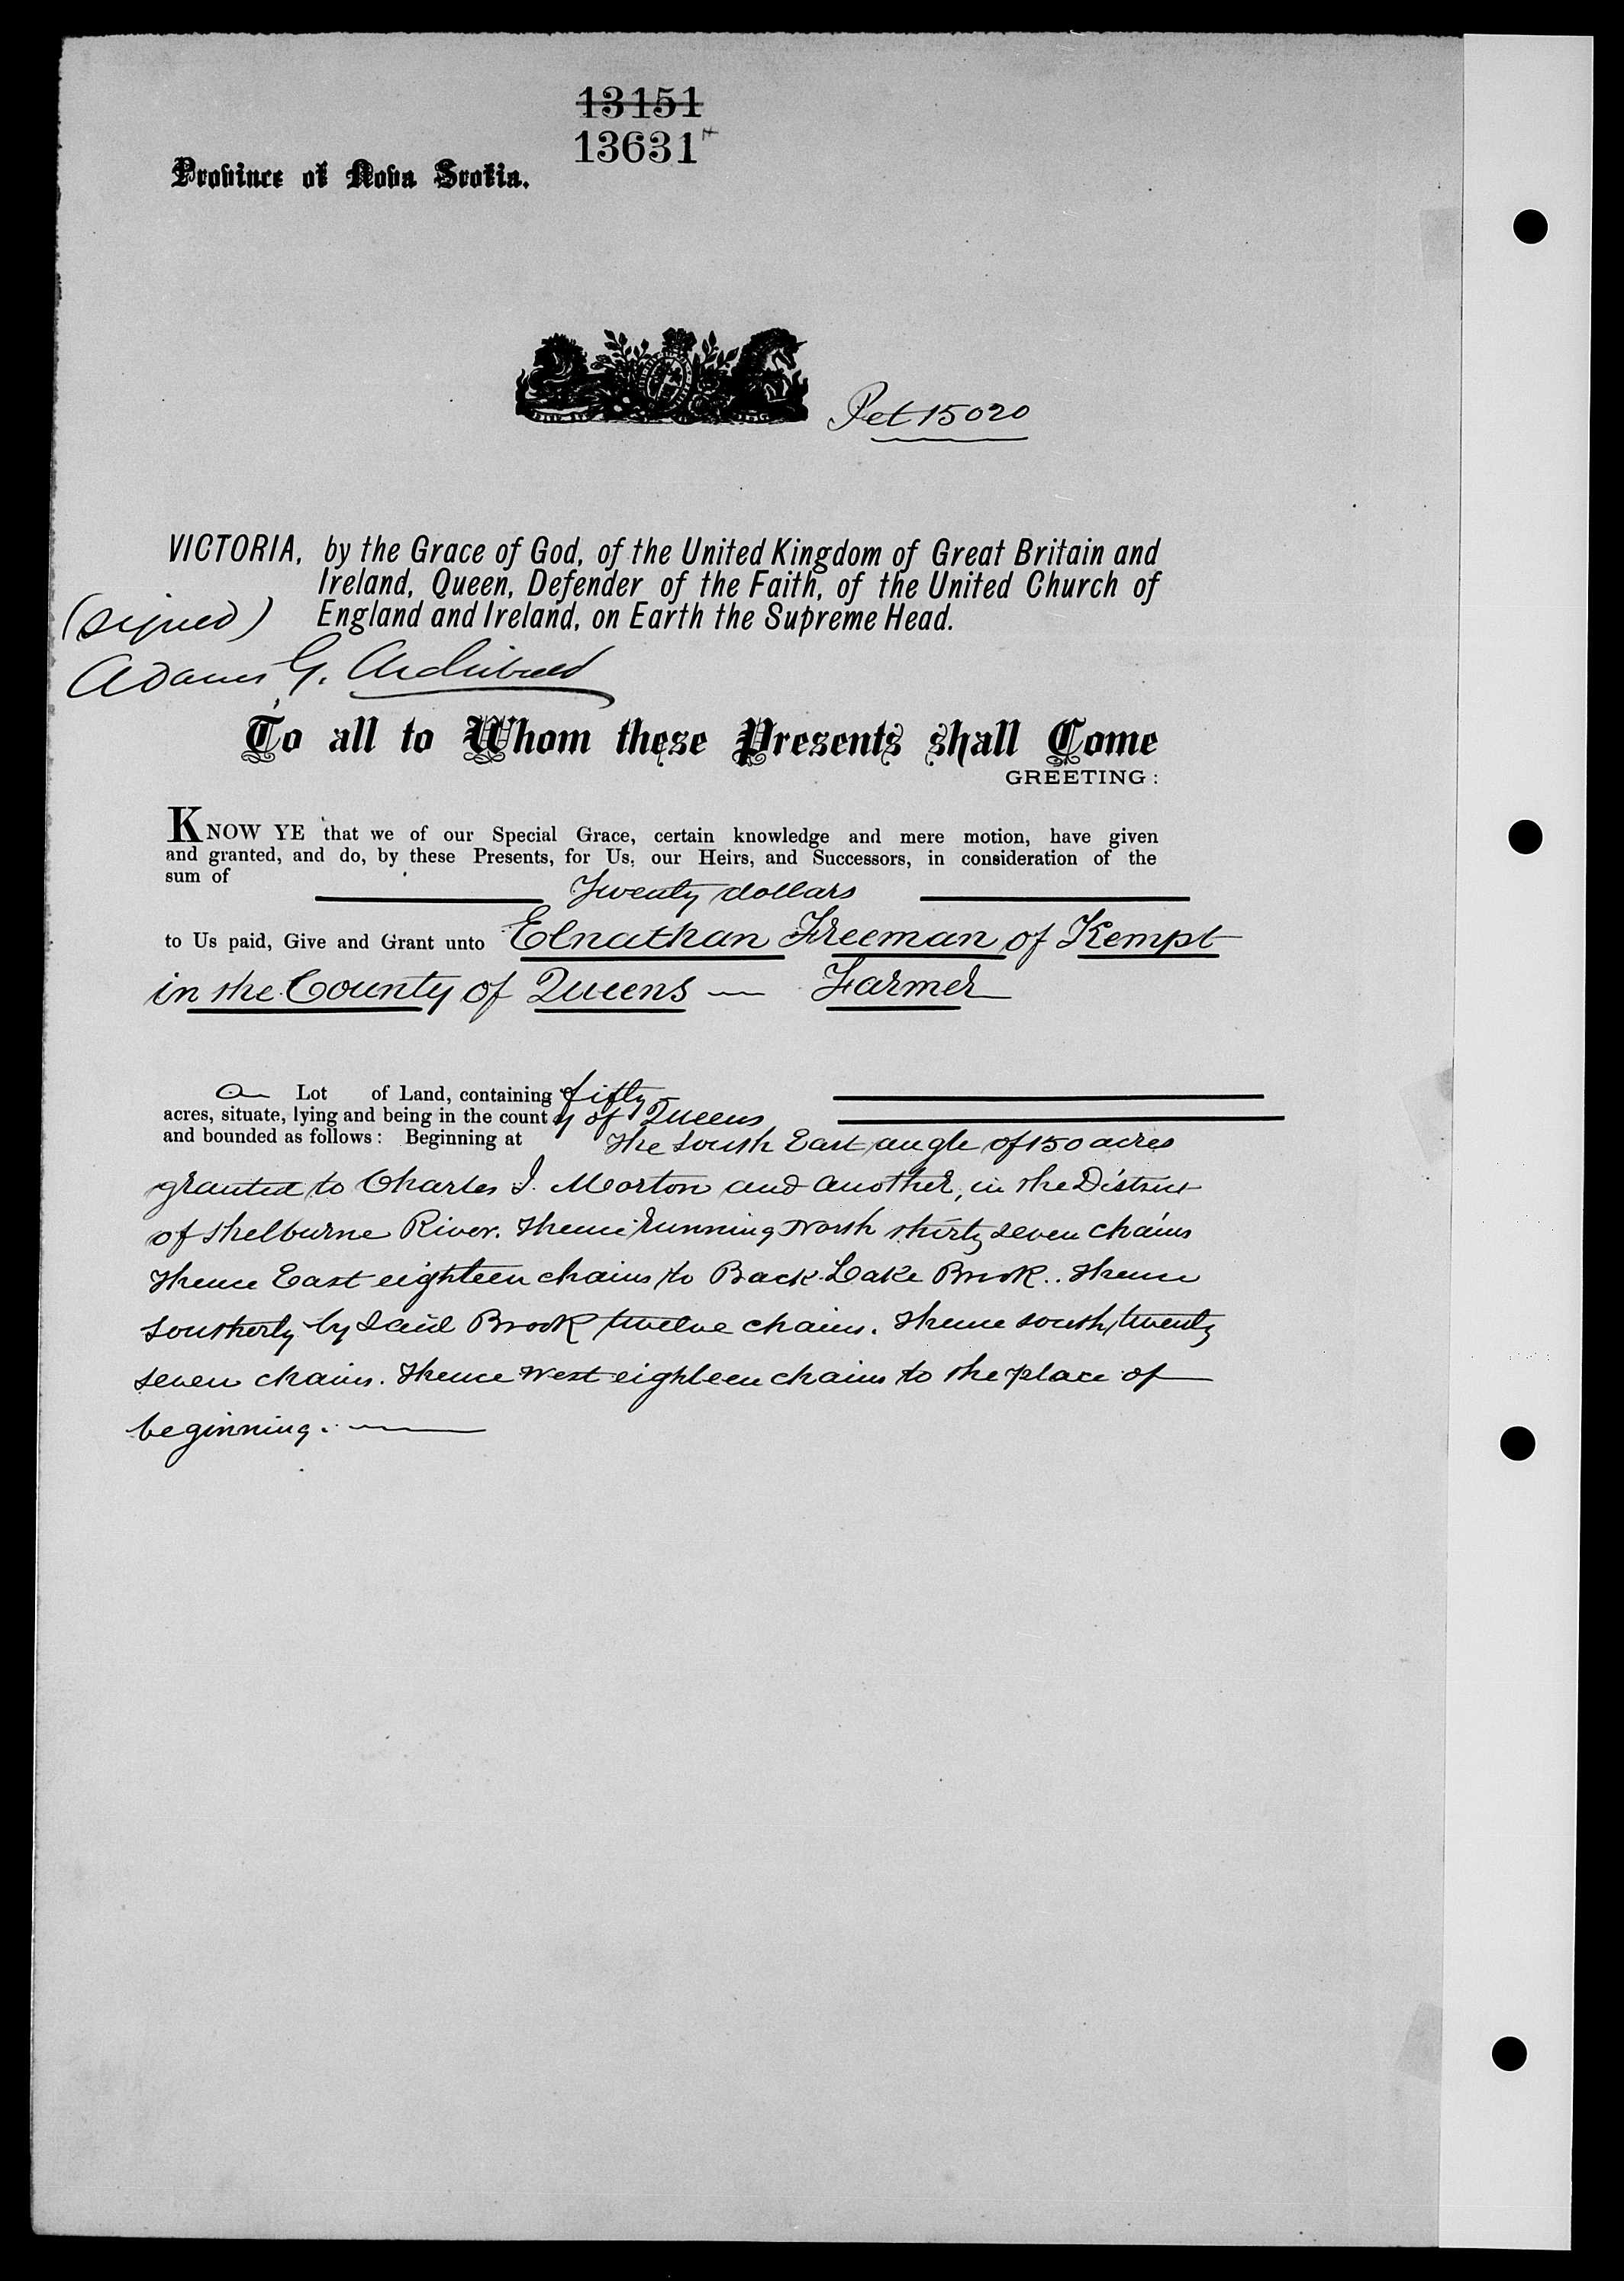 13151
13631
Province of Nova Scotia.
Pet 15020
VICTORIA, by the Grace of God, of the United Kingdom of Great Britain and
Ireland, Queen, Defender of the Faith, of the United Church of
England and Ireland, on Earth the Supreme Head.
(signed)
Adams G. Archibald
To all to Whom these Presents shall Come
GREETING:
KNOW YE that we of our Special Grace, certain knowledge and mere motion, have given
and granted, and do, by these Presents, for Us, our Heirs, and Successors, in consideration of the
sum of
Twenty dollars
to Us paid, Give and Grant unto Elnathan Freeman of Kempt
in the County of Queens — Farmer
a Lot of Land, containing fifty
acres, situate, lying and being in the county of Queens
and bounded as follows: Beginning at the South East angle of 150 acres
granted to Charles I. Morton and another, in the District
of Shelburne River. Thence running North thirty seven chains
Thence East eighteen chains to Back Lake Brook.. Thence
Southerly by said Brook twelve chains. Thence south twenty
seven chains. Thence West eighteen chains to the place of
beginning. —